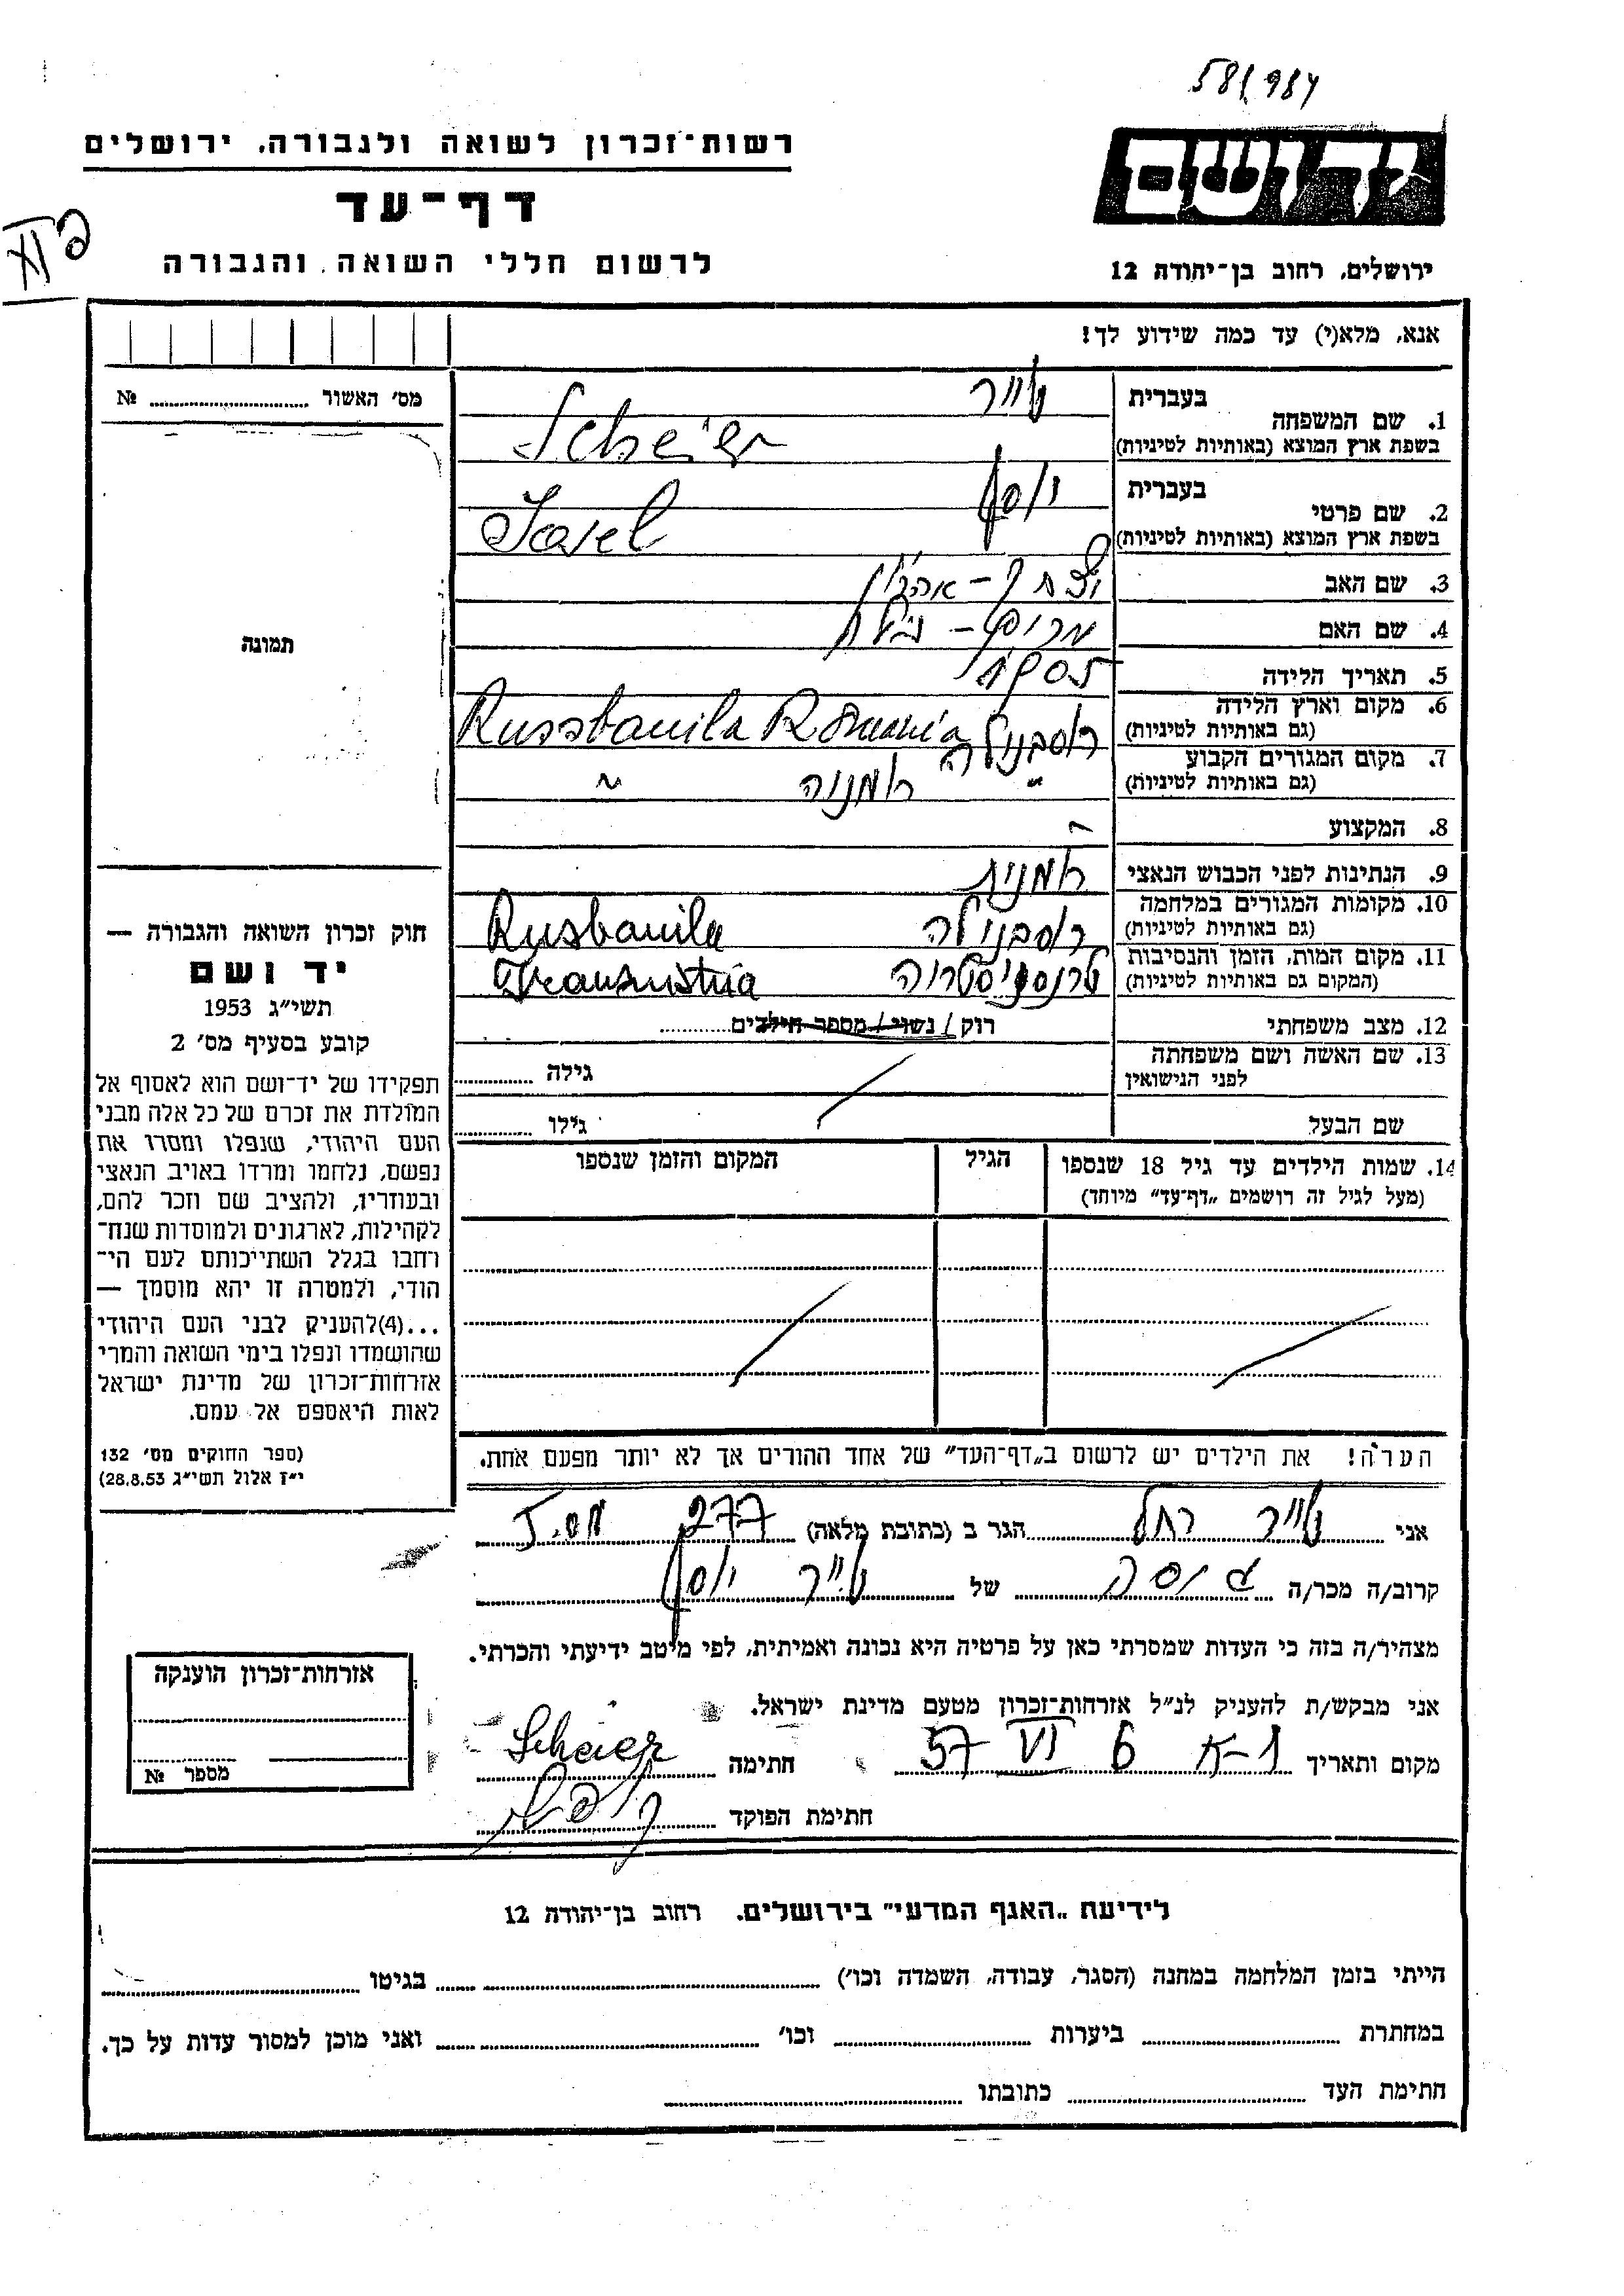 581,984
יד ושם
רשות־זכרון לשואה ולגבורה, ירושלים
דף־עד
לרשום חללי השואה והגבורה
ירושלים, רחוב בן־יהודה 12
אנא, מלא(י) עד כמה שידוע לך!
מס׳ האשור № ........
1. שם המשפחה בעברית שייר
בשפת ארץ המוצא (באותיות לטיניות) Scheier
2. שם פרטי בעברית יוסף
בשפת ארץ המוצא (באותיות לטיניות) Josel
3. שם האב יצחק - אהרון
4. שם האם מרים -
5. תאריך הלידה 1905
6. מקום וארץ הלידה רוסבנילה Russbanila Romania
(גם באותיות לטיניות)
7. מקום המגורים הקבוע " רומניה "
(גם באותיות לטיניות)
8. המקצוע -
9. הנתינות לפני הכבוש הנאצי רומנית
10. מקומות המגורים במלחמה רוסבנילה Rusbanila
(גם באותיות לטיניות)
11. מקום המות, הזמן והנסיבות טרנסניסטריה Transnistria
(המקום גם באותיות לטיניות)
12. מצב משפחתי רוק / נשוי / מספר הילדים ........
13. שם האשה ושם משפחתה
לפני הנישואין גילה ........
שם הבעל גילו ........
14. שמות הילדים עד גיל 18 שנספו הגיל המקום והזמן שנספו
(מעל לגיל זה רושמים „דף־עד” מיוחד)
הערה! את הילדים יש לרשום ב„דף־העד” של אחד ההורים אך לא יותר מפעם אחת.
תמונה
חוק זכרון השואה והגבורה —
יד ושם
תשי״ג 1953
קובע בסעיף מס׳ 2
תפקידו של יד־ושם הוא לאסוף אל
המולדת את זכרם של כל אלה מבני
העם היהודי, שנפלו ומסרו את
נפשם, נלחמו ומרדו באויב הנאצי
ובעוזריו, ולהציב שם וזכר להם,
לקהילות, לארגונים ולמוסדות שנח־
רבו בגלל השתייכותם לעם הי־
הודי, ולמטרה זו יהא מוסמך —
...(4)להעניק לבני העם היהודי
שהושמדו ונפלו בימי השואה והמרי
אזרחות־זכרון של מדינת ישראל
לאות היאספם אל עמם.
(ספר החוקים מס׳ 132
י״ז אלול תשי״ג 28.8.53)
אני שייר רחל הגר ב (כתובת מלאה) 277
קרוב/ה מכר/ה גיסה של שייר יוסף
מצהיר/ה בזה כי העדות שמסרתי כאן על פרטיה היא נכונה ואמיתית, לפי מיטב ידיעתי והכרתי.
אני מבקש/ת להעניק לנ״ל אזרחות־זכרון מטעם מדינת ישראל.
מקום ותאריך 6 VI 57 חתימה Scheier
חתימת הפוקד
אזרחות־זכרון הוענקה
מספר №
לידיעת „האגף המדעי” בירושלים. רחוב בן־יהודה 12
הייתי בזמן המלחמה במחנה (הסגר, עבודה, השמדה וכו׳) ........ בגיטו ........
במחתרת ........ ביערות ........ וכו׳ ........ ואני מוכן למסור עדות על כך.
חתימת העד ........ כתובתו ........